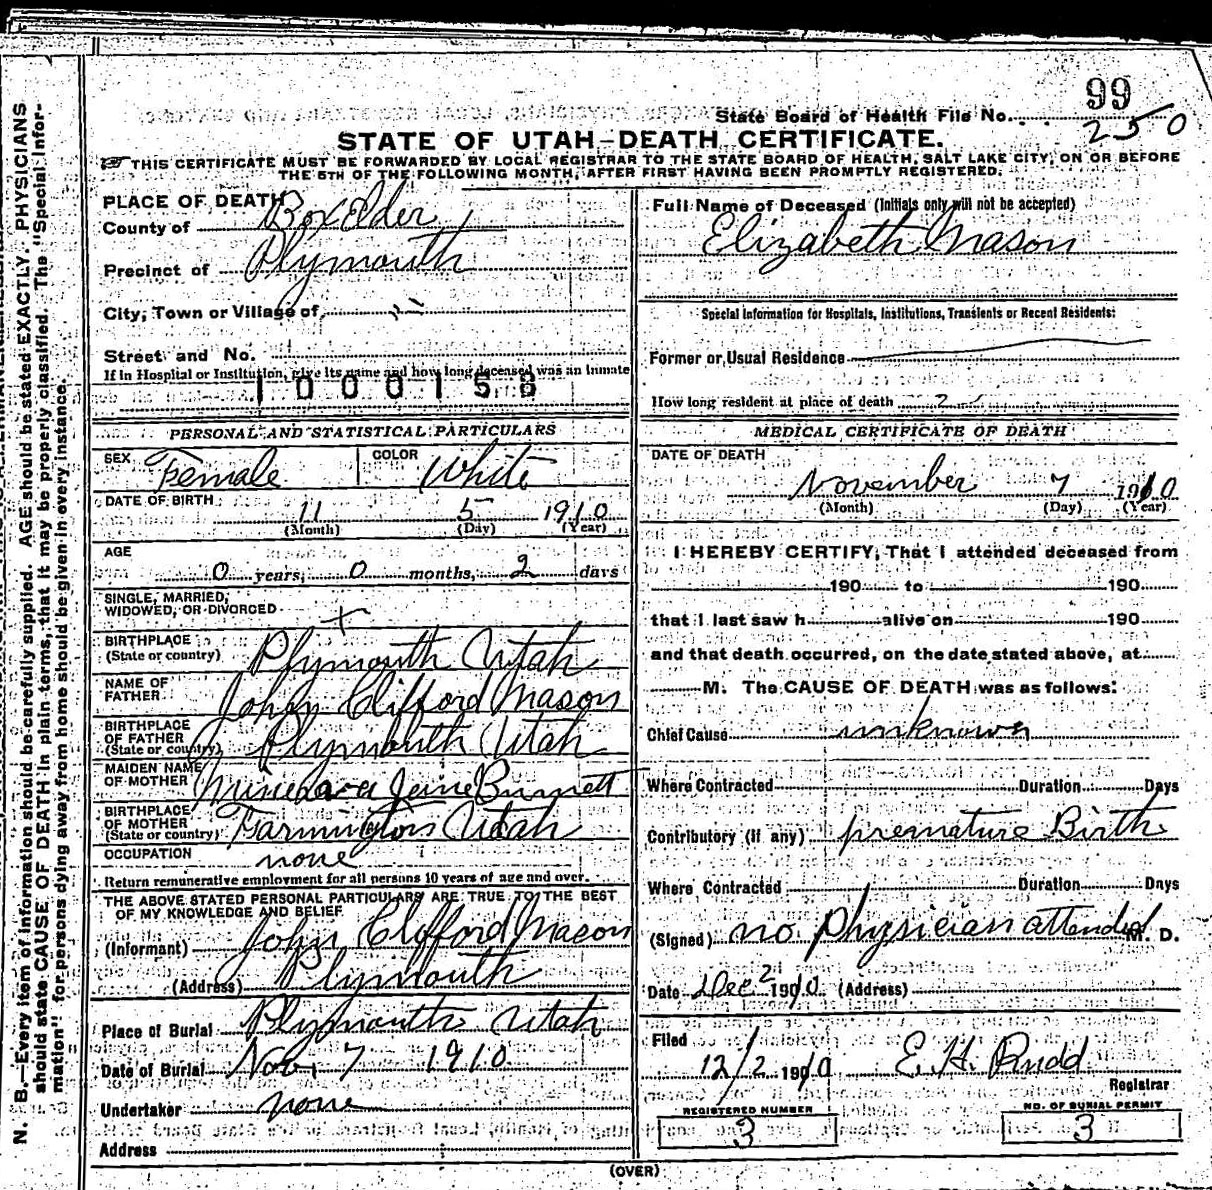 99
State Board of Health File No. 250
STATE OF UTAH—DEATH CERTIFICATE.
THIS CERTIFICATE MUST BE FORWARDED BY LOCAL REGISTRAR TO THE STATE BOARD OF HEALTH, SALT LAKE CITY, ON OR BEFORE
THE 5TH OF THE FOLLOWING MONTH, AFTER FIRST HAVING BEEN PROMPTLY REGISTERED.
PLACE OF DEATH
County of Box Elder
Precinct of Plymouth
City, Town or Village of "
Street and No.
If in Hospital or Institution, give its name and how long deceased was an inmate
1000158
PERSONAL AND STATISTICAL PARTICULARS
SEX Female COLOR White
DATE OF BIRTH
11 5 1910
(Month) (Day) (Year)
AGE
0 years, 0 months, 2 days
SINGLE, MARRIED,
WIDOWED, OR DIVORCED
BIRTHPLACE
(State or country) Plymouth Utah
NAME OF
FATHER John Clifford Mason
BIRTHPLACE
OF FATHER
(State or country) Plymouth Utah
MAIDEN NAME
OF MOTHER
BIRTHPLACE
OF MOTHER
(State or country) Farmington Utah
OCCUPATION none
Return remunerative employment for all persons 10 years of age and over.
THE ABOVE STATED PERSONAL PARTICULARS ARE TRUE TO THE BEST
OF MY KNOWLEDGE AND BELIEF
(Informant) John Clifford Mason
(Address) Plymouth
Place of Burial Plymouth Utah
Date of Burial Nov. 7 1910
Undertaker none
Address
Full Name of Deceased (Initials only will not be accepted)
Elizabeth Mason
Special Information for Hospitals, Institutions, Transients or Recent Residents:
Former or Usual Residence
How long resident at place of death 2
MEDICAL CERTIFICATE OF DEATH
DATE OF DEATH
November 7 1910
(Month) (Day) (Year)
I HEREBY CERTIFY, That I attended deceased from
190 to 190
that I last saw h alive on 190
and that death occurred, on the date stated above, at
M. The CAUSE OF DEATH was as follows:
Chief Cause unknown
Where Contracted Duration Days
Contributory (if any) premature Birth
Where Contracted Duration Days
(Signed) no physician attended M. D.
Date Dec 2 1910 (Address)
Filed
12/2 1910 E. H. Rudd
Registrar
REGISTERED NUMBER
3
NO. OF BURIAL PERMIT
3
(OVER)
N. B.—Every item of information should be carefully supplied. AGE should be stated EXACTLY. PHYSICIANS
should state CAUSE OF DEATH in plain terms, that it may be properly classified. The "Special Infor-
mation" for persons dying away from home should be given in every instance.